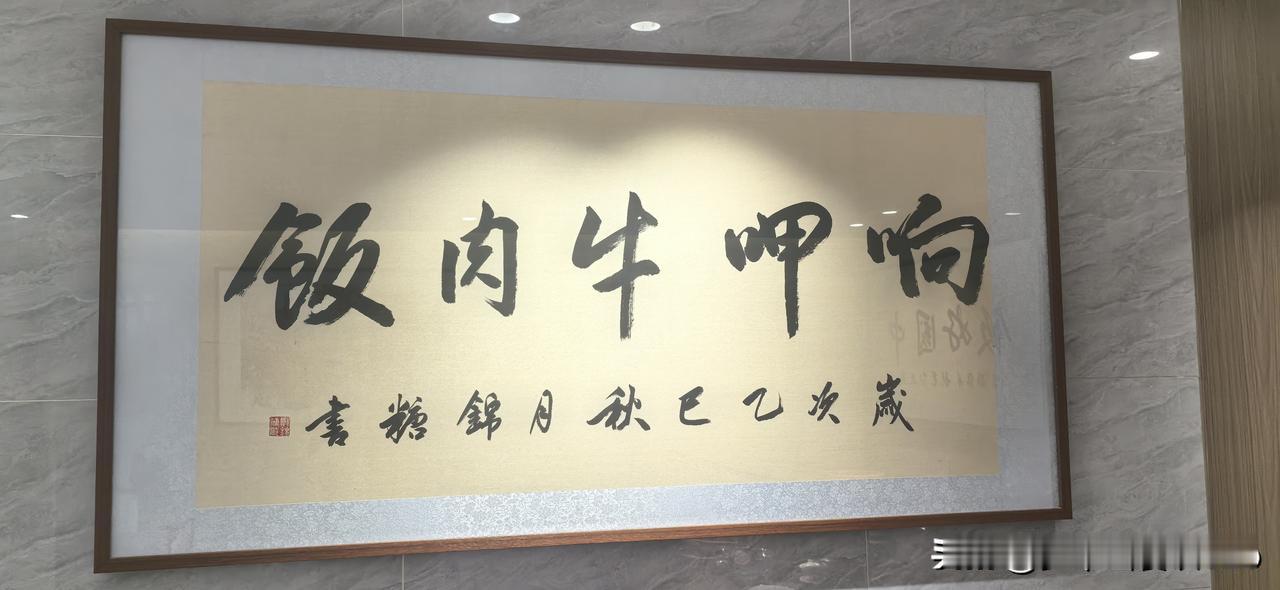 响呷牛肉饭
歲次乙巳秋月錦糖書